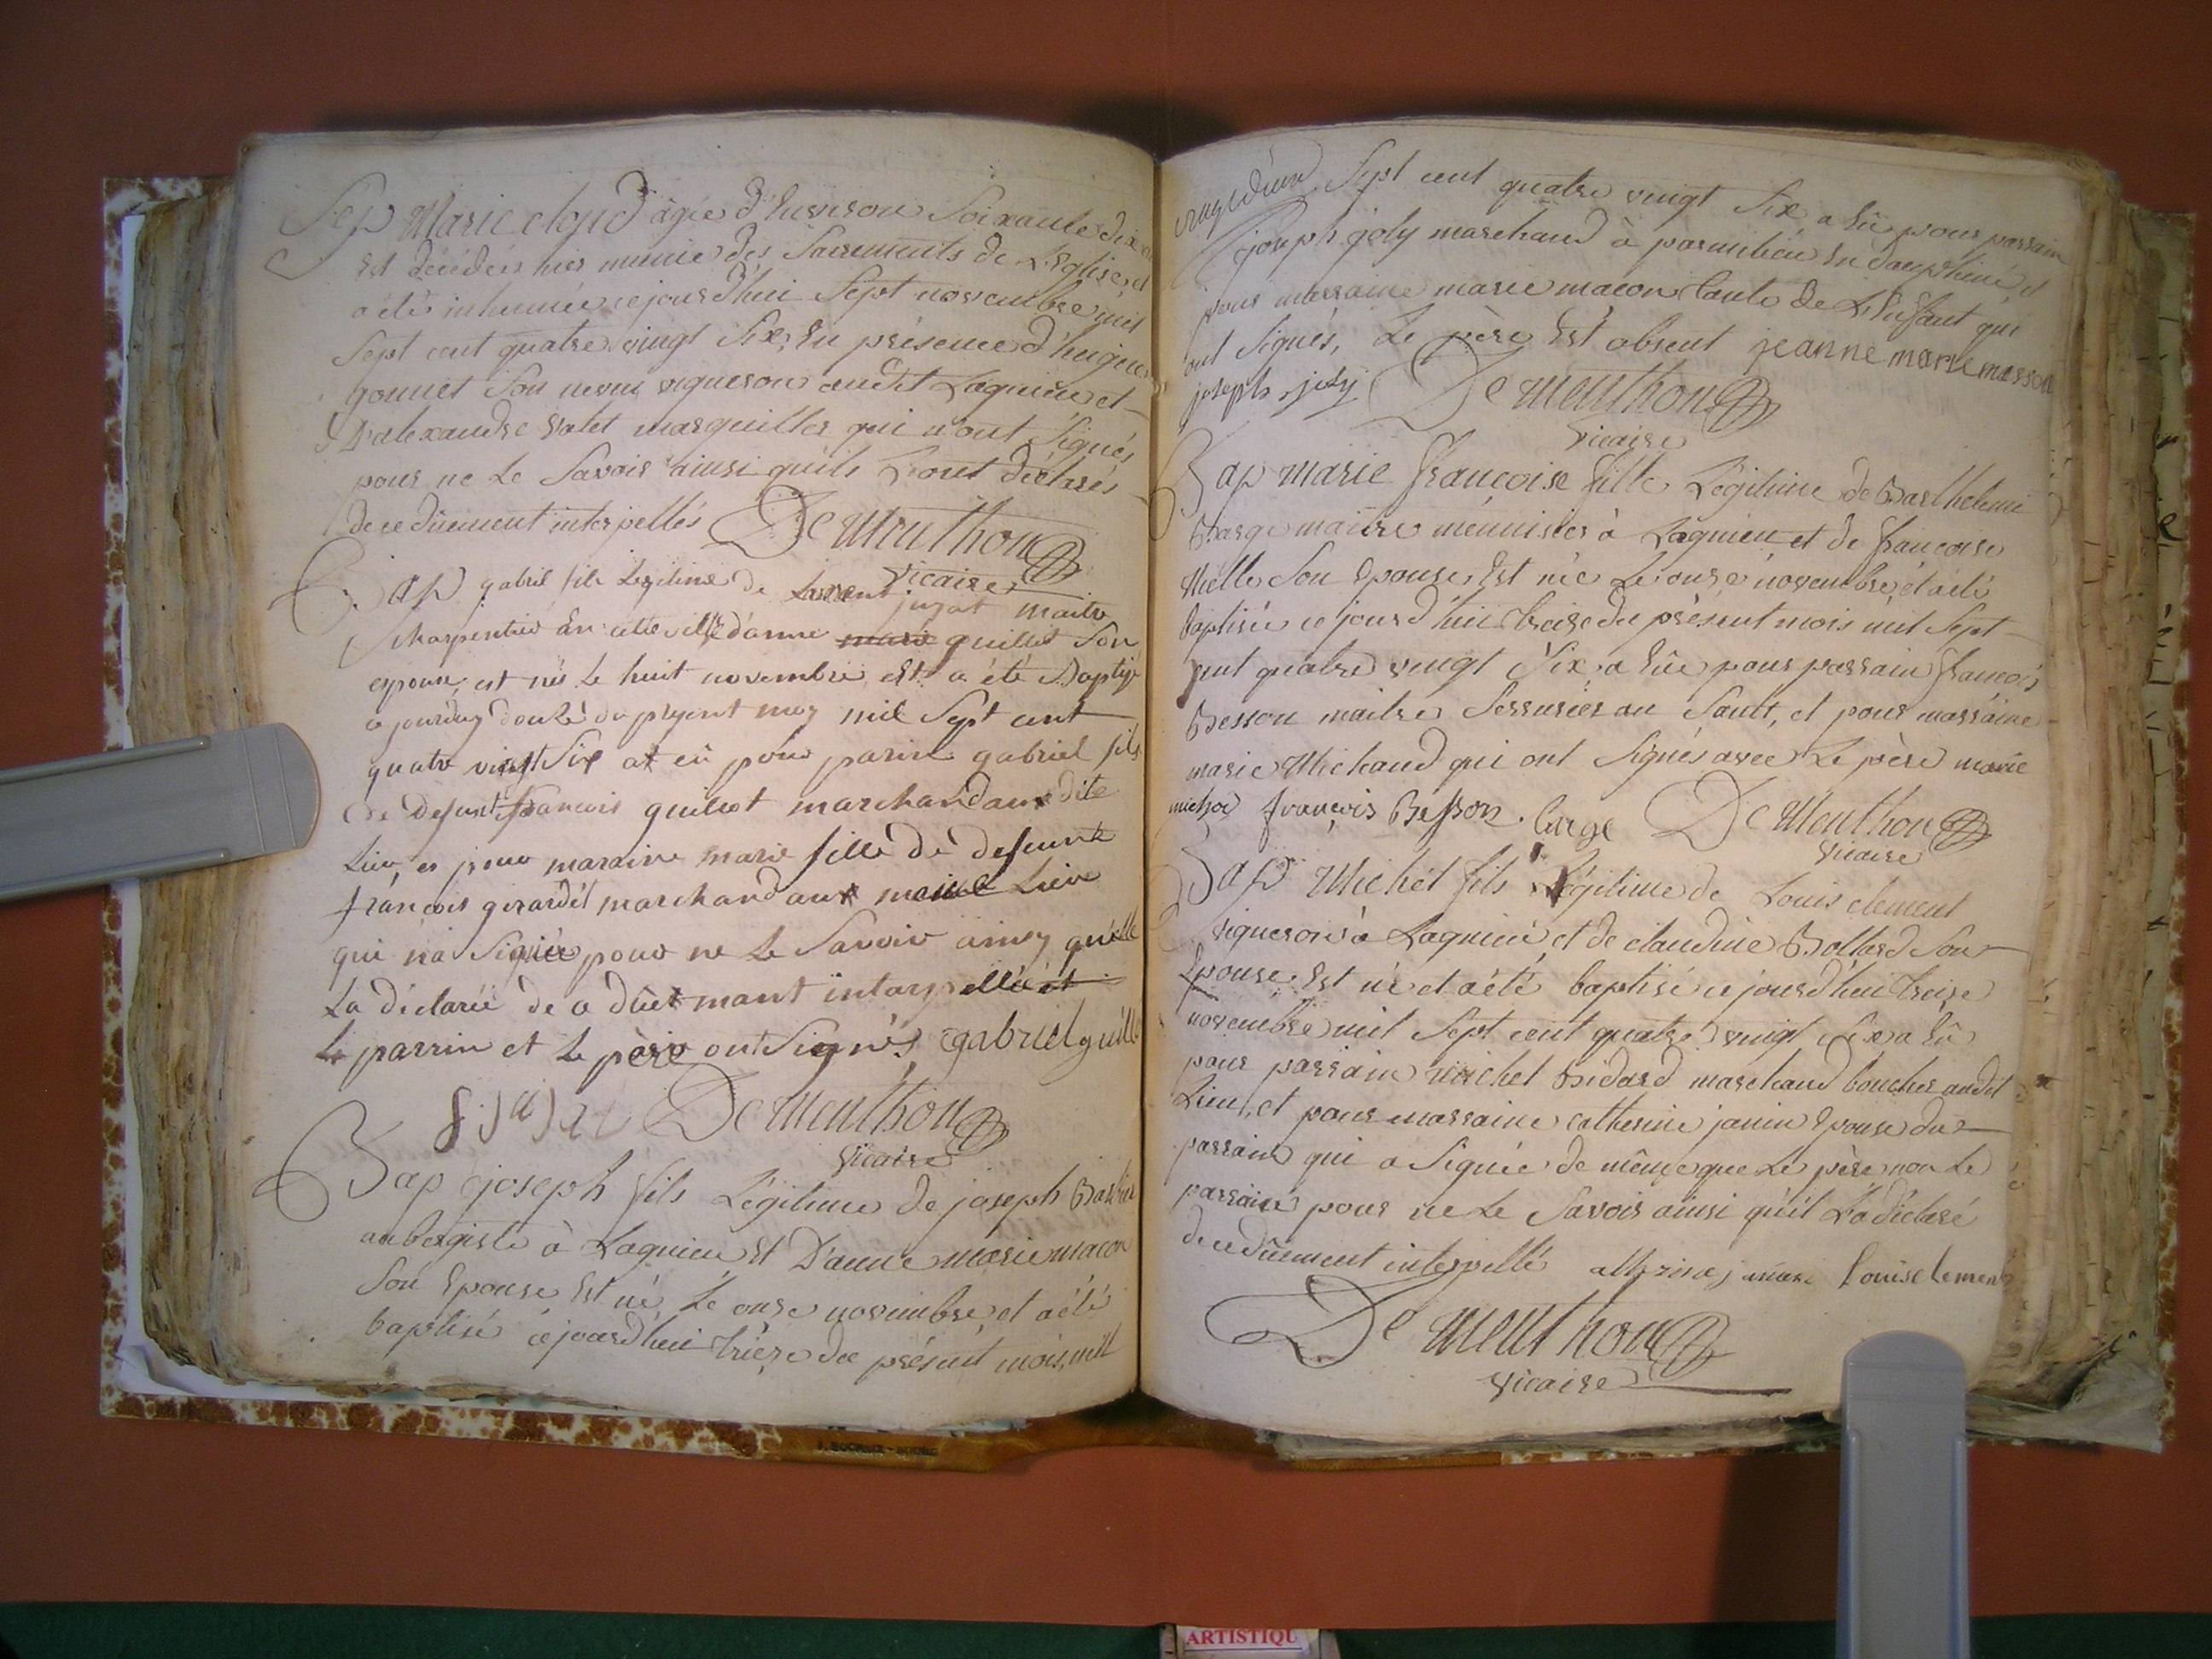 Sep Marie cloud âgée d'Environ Soixante dix
Est décédée hier munie des Sacrements de L'Eglise, et
a été inhumée ce jourd'hui Sept novembre mil
Sept cent quatre vingt Six, En présence d'hugues
gonnet Son neveu vigneron audit Lagnieu et
D'alexandre valet marguiller qui n'ont Signés
pour ne Le Savoir ainsi qu'ils L'ont déclarés
de ce dûement interpellés De Menthon
Vicaire
Bap gabril fils Legitime de Laurent jujat maitre
Charpentier En cette ville d'anne marie guillot Son
epouse, est né Le huit novembre Est a été Baptisé
a jourduy douze du presant moy mil Sept cent
quatre vingt Six at eü pour parin gabriel fils
de defunt francois guillot marchand au dite
Lieu, es pour maraine marie fille de defunt
françois girardet marchand aux meme Lieu
qui na Signée pour ne Le Savoir ainsy quelle
La déclarée de a düemant intarpellée et
Le parrin et Le père ont Signés gabriel guillo
De Menthon
Vicaire
Bap joseph fils Légitime de joseph Barbier
aubergiste à Lagnieu et D'anne marie macon
Son Epouse Est né Le onze novembre, et a été
baptisé ce jourd'hui treize du présent mois, mil
Sept cent quatre vingt Six a Eû pour parrain
joseph joly marchand à parmilieu En dauphiné, et
pour marraine marie macon tante de L'Enfant qui
ont Signés, Le père Est absent jeanne marie masson
joseph joly De Menthon
Vicaire
Bap marie françoise fille Légitime de Barthelemi
Barge maitre ménuisier à Lagnieu et de françoise
Mille Son Epouse, Est née Le onze novembre, et a été
baptisée ce jourd'hui treize du présent mois mil Sept
cent quatre vingt Six, a Eûe pour parrain françois
Besson maitre Serrurier au Sault, et pour marraine
marie Michaud qui ont Signés avec Le père marie
michod françois Besson . barge De Menthon
Vicaire
Bap Michel fils Légitime de Louis clement
vigneron à Lagnieu, et de claudine Bollard Son
Epouse Est né et a été baptisé ce jourd'hui treize
novembre mil Sept cent quatre vingt Six a Eû
pour parrain michel Bidard marchand boucher audit
Lieu, et pour marraine catherine janin Epouse du
parrain qui a Signée de même que Le père non Le
parrain pour ne Le Savoir ainsi qu'il L'a déclaré
de ce dûement interpellé janin Louis clement
De Menthon
Vicaire
ARTISTIQU